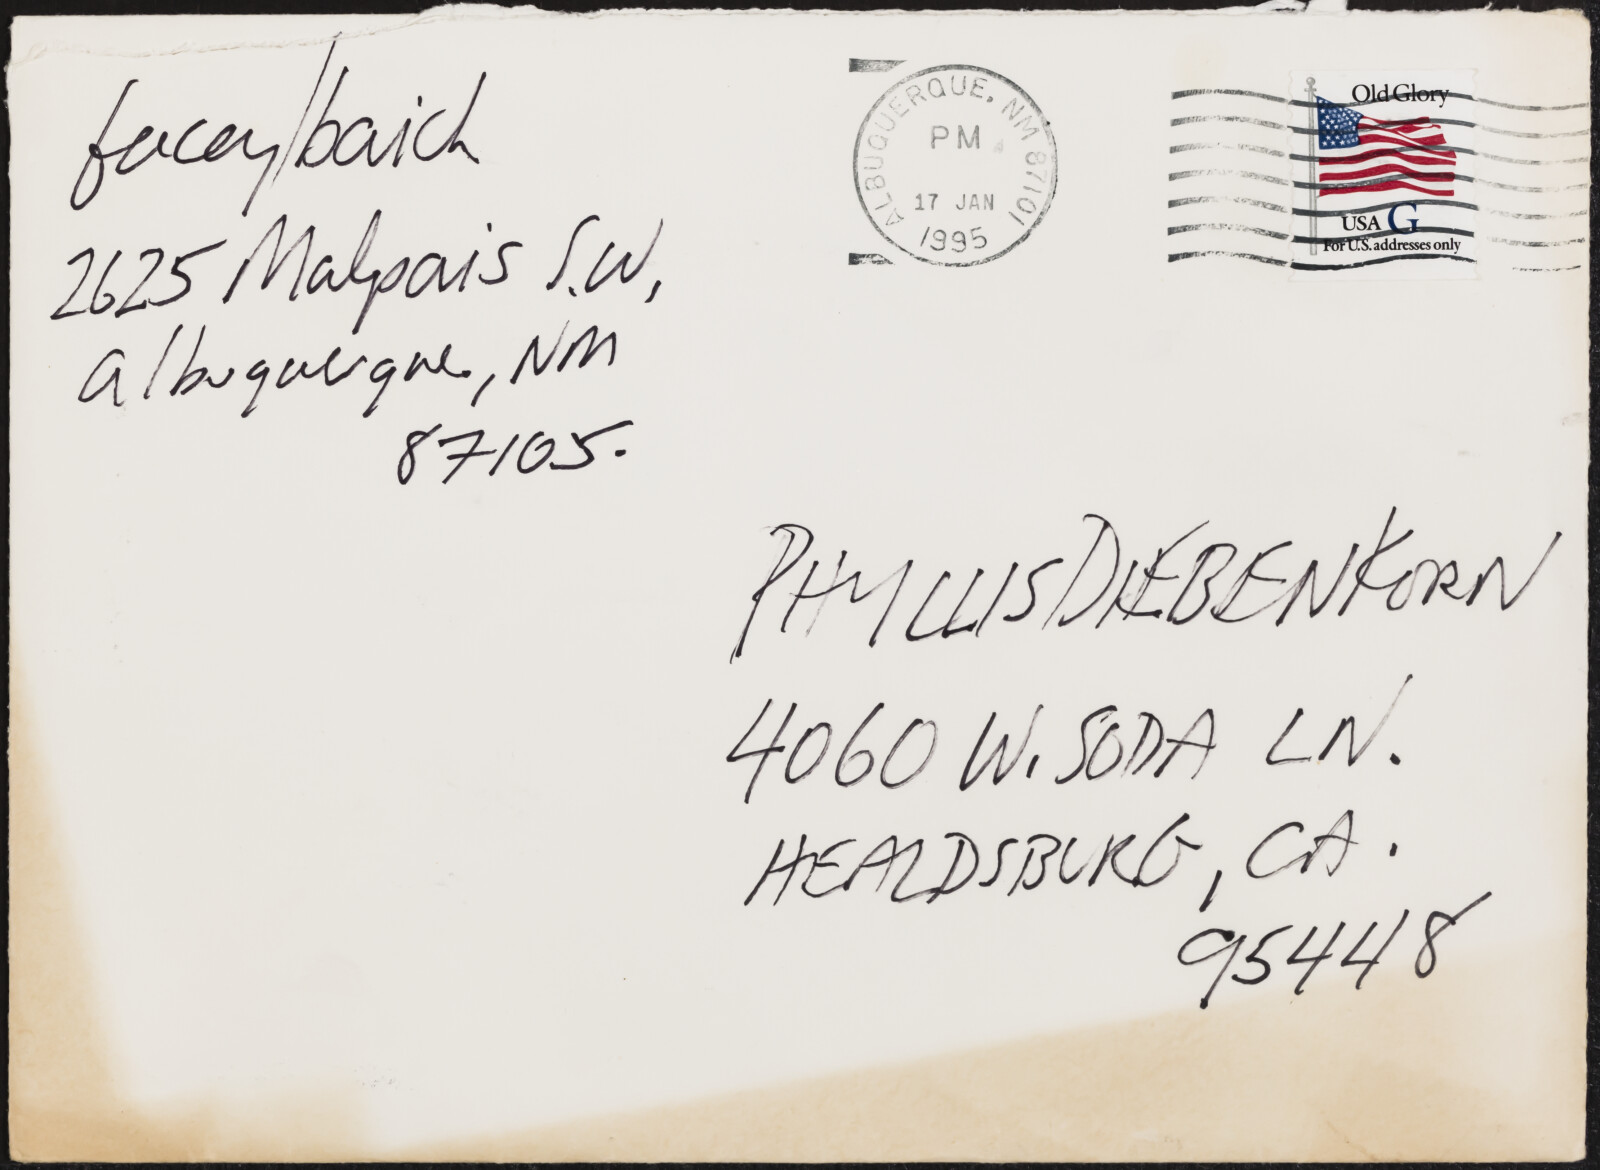 facey/baich
2625 Malpais S.W,
Albuquerque, NM
87105.
ALBUQUERQUE, NM 87101
PM
17 JAN
1995
Old Glory
USA G
For U.S. addresses only
PHYLLIS DIEBENKORN
4060 W. SODA LN.
HEALDSBURG, CA.
95448